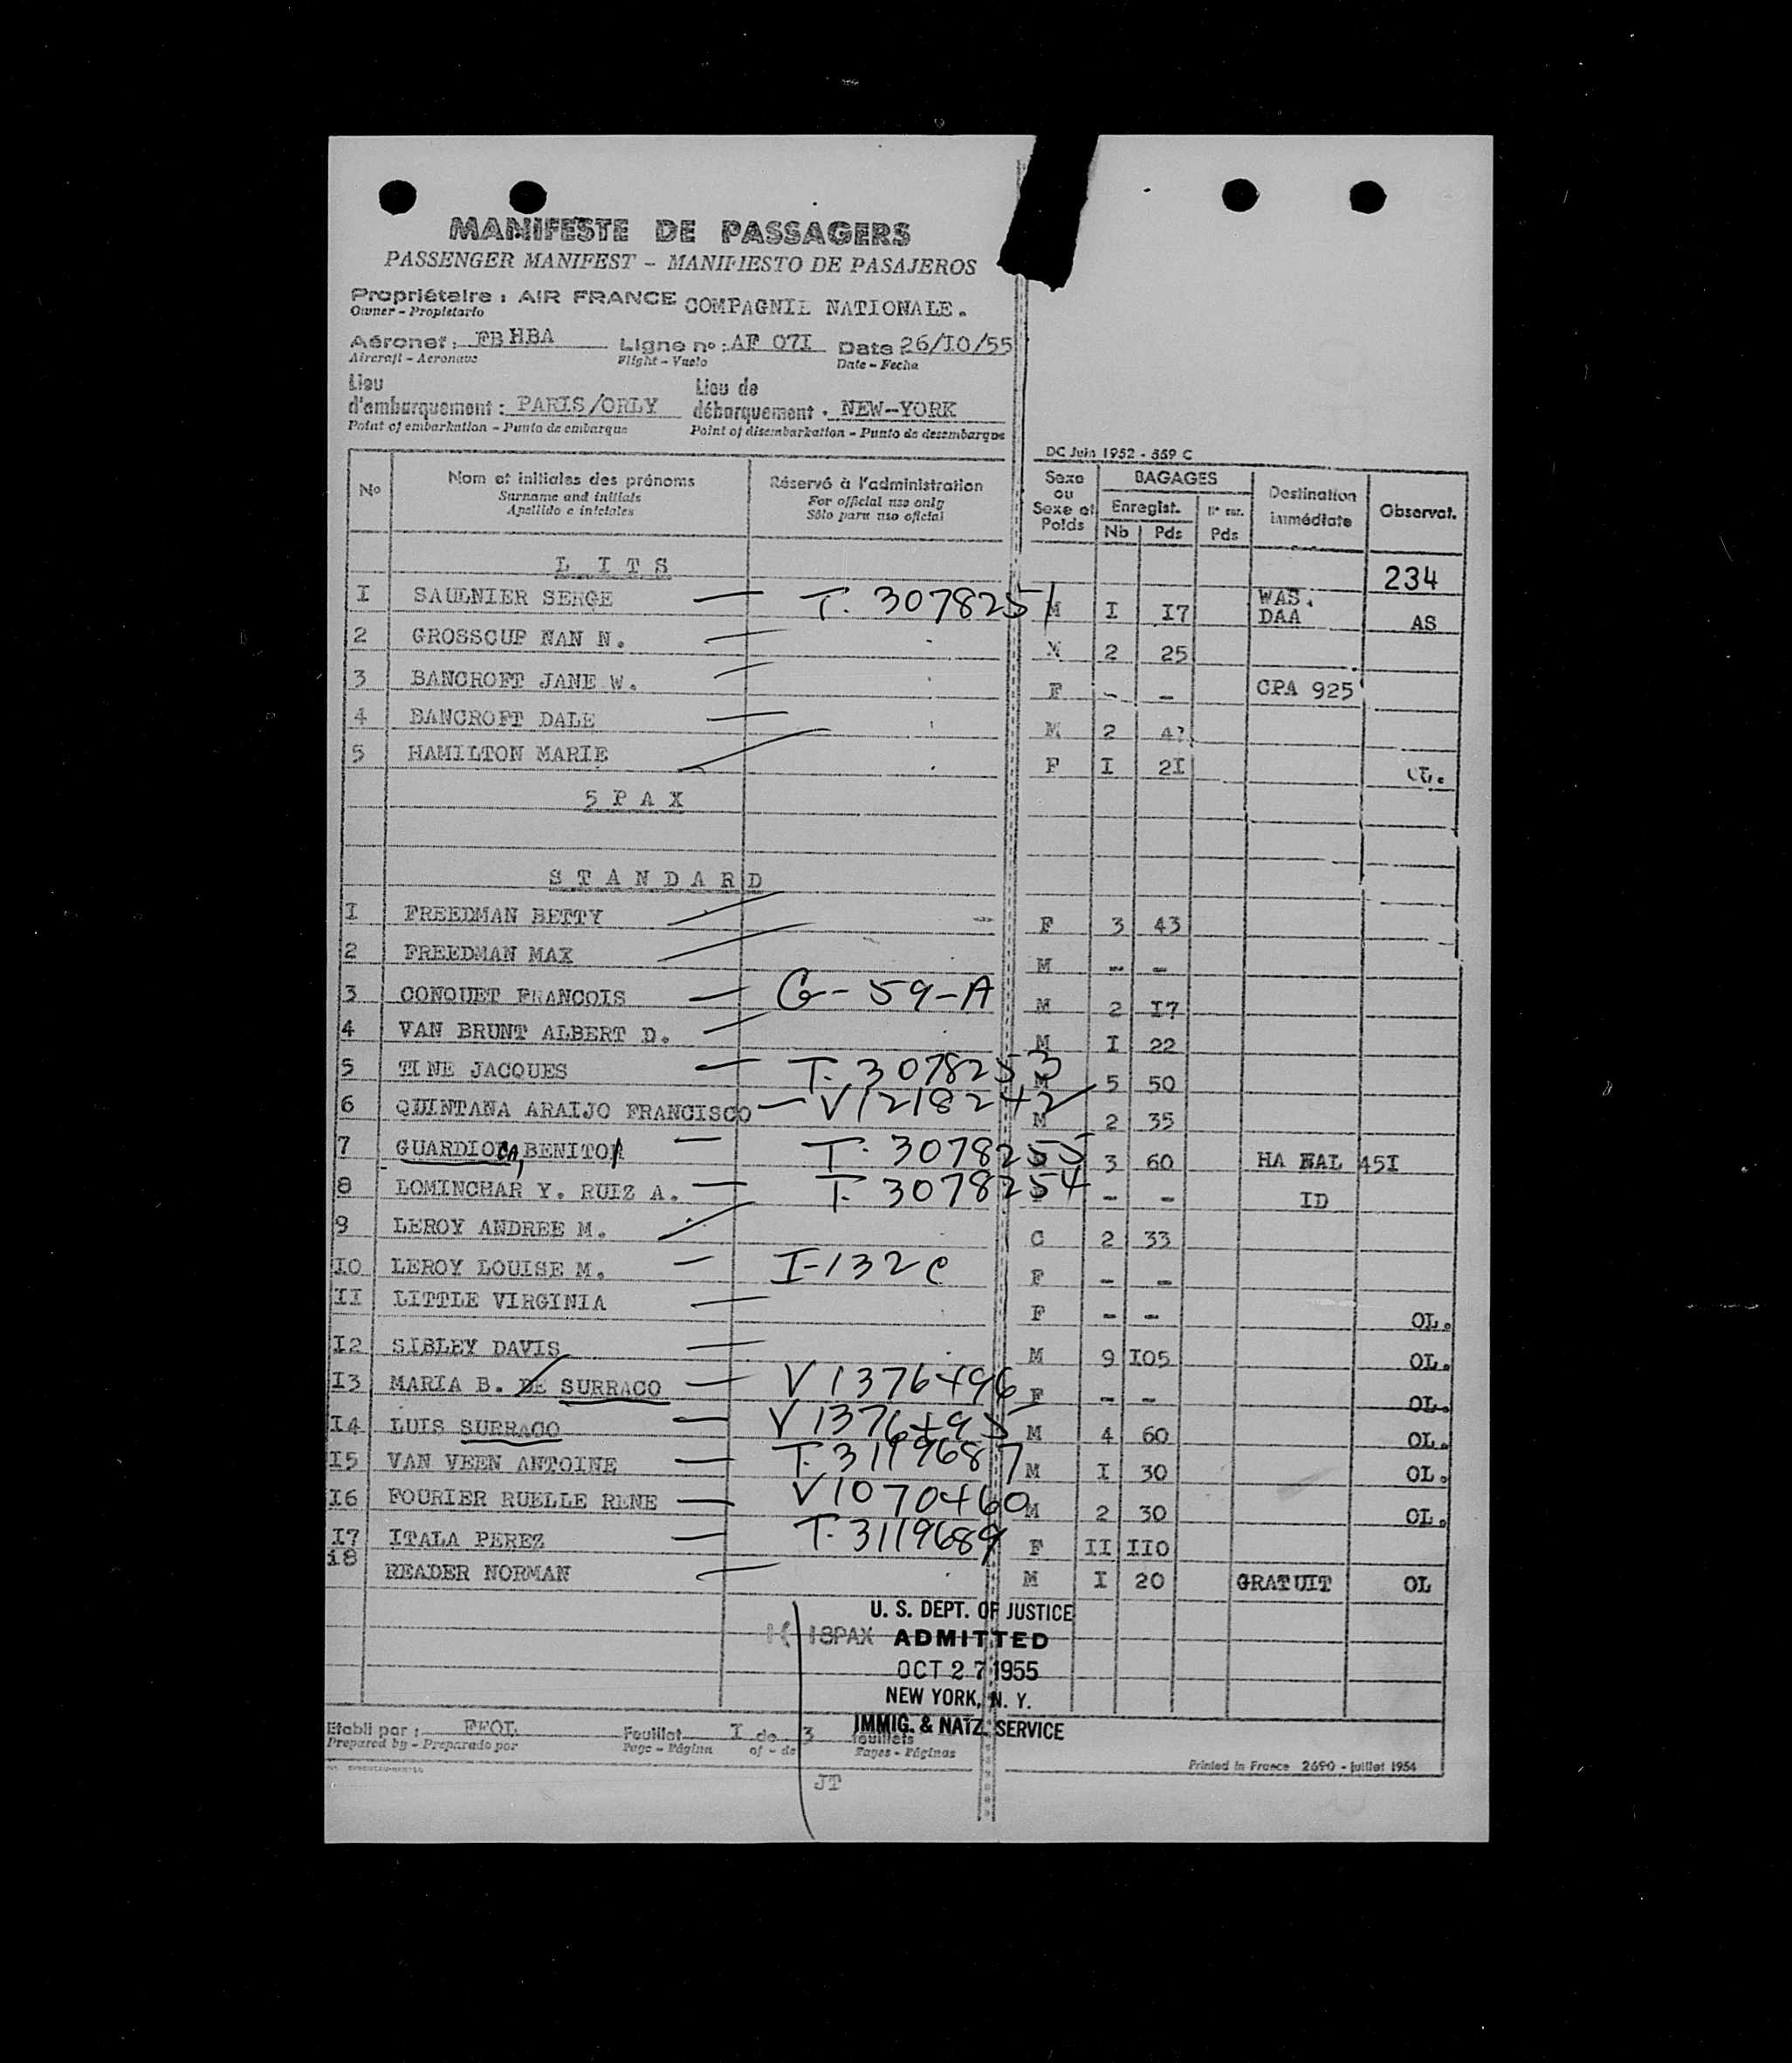 MANIFESTE DE PASSAGERS
PASSENGER MANIFEST - MANIFIESTO DE PASAJEROS
Propriétaire : AIR FRANCE COMPAGNIE NATIONALE.
Owner - Propietario
Aéronef : FBHBA Ligne nº : AF 07I Date 26/IO/55
Aircraft - Aeronave Flight - Vuelo Date - Fecha
Lieu Lieu de
d'embarquement : PARIS/ORLY débarquement . NEW-YORK
Point of embarkation - Punto de embarque Point of disembarkation - Punto de desembarque
DC Juin 1952 - 559 C
Nº Nom et initiales des prénoms Réservé à l'administration Sexe ou Sexe et Poids BAGAGES Destination immédiate Observat.
Surname and initials For official use only Enregist.
Apellido e iniciales Sólo para uso oficial Nb Pds Pds
L I T S 234
I SAULNIER SERGE — T. 3078251 M I I7 WAS. DAA AS
2 GROSSCUP NAN N. — 2 25
3 BANCROFT JANE W. — F - - CPA 925
4 BANCROFT DALE — M 2
5 HAMILTON MARIE F I 2I
5 P A X
S T A N D A R D
I FREEDMAN BETTY F 3 43
2 FREEDMAN MAX M - -
3 CONQUET FRANCOIS — G-59-A M 2 I7
4 VAN BRUNT ALBERT D. — M I 22
5 TINE JACQUES — T. 3078253 M 5 50
6 QUINTANA ARAIJO FRANCISCO — V1218242 M 2 35
7 GUARDIOLA, BENITO — T. 3078255 3 60 HA NAL 45I
8 LOMINCHAR Y. RUIZ A. — T. 3078254 - - ID
9 LEROY ANDREE M. C 2 33
IO LEROY LOUISE M. — I-132c F - -
II LITTLE VIRGINIA — F - - OL.
I2 SIBLEY DAVIS — M 9 IO5 OL.
I3 MARIA B. DE SURRACO — V1376496 F - - OL.
I4 LUIS SURRACO — V1376495 M 4 60 OL.
I5 VAN VEEN ANTOINE — T. 3119687 M I 30 OL.
I6 FOURIER RUELLE RENE — V1070460 M 2 30 OL.
I7 ITALA PEREZ — T. 3119689 F II IIO
i8 READER NORMAN — M I 20 GRATUIT OL
U. S. DEPT. OF JUSTICE
18PAX ADMITTED
OCT 27 1955
NEW YORK, N. Y.
IMMIG. & NATZ. SERVICE
Etabli par : Feuillet I de 3 feuillets
Prepared by - Preparado por Page - Página of - de Pages - Páginas
Printed in France 2690 - juillet 1954
JT